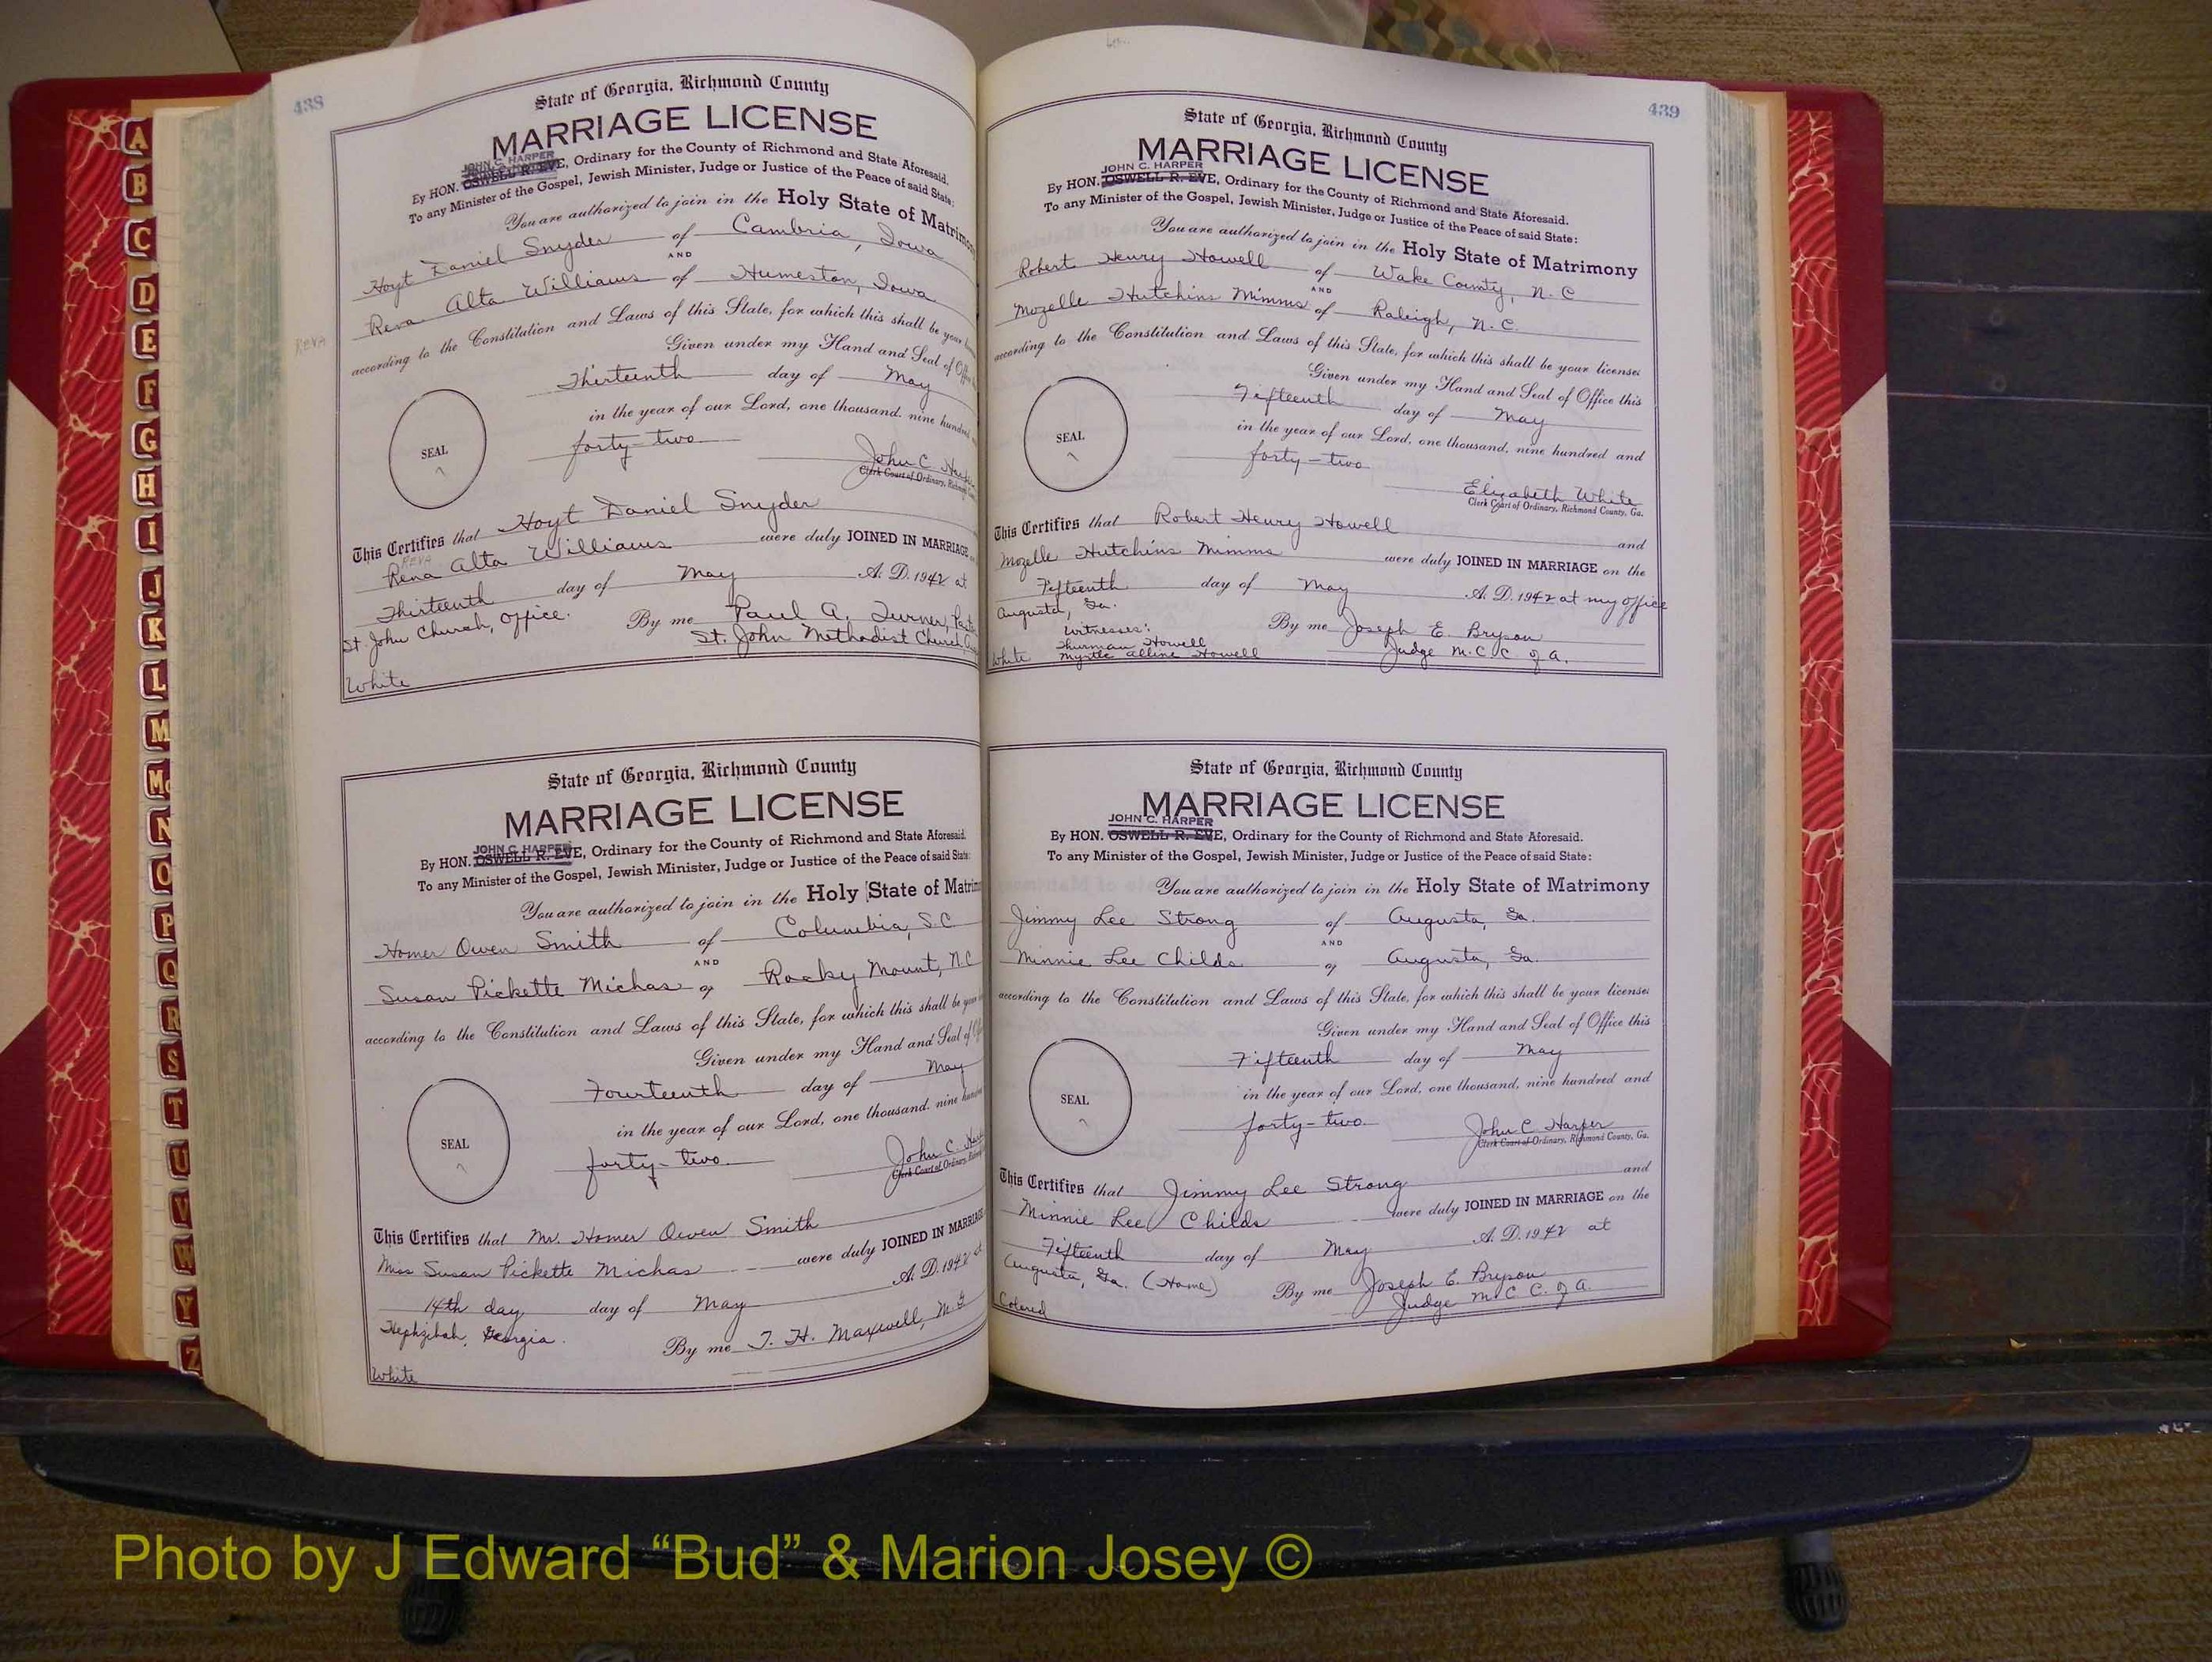 438
State of Georgia, Richmond County
MARRIAGE LICENSE
JOHN C. HARPER
By HON. OSWELL R. EVE, Ordinary for the County of Richmond and State Aforesaid.
To any Minister of the Gospel, Jewish Minister, Judge or Justice of the Peace of said State:
You are authorized to join in the Holy State of Matrimony
Hoyt Daniel Snyder of Cambria, Iowa
AND
Rena Alta Williams of Humeston, Iowa
REVA
according to the Constitution and Laws of this State, for which this shall be your
Given under my Hand and Seal of Office
Thirteenth day of May
in the year of our Lord, one thousand, nine hundred
forty-two
SEAL
John C. Harper
Clerk Court of Ordinary, Richmond
This Certifies that Hoyt Daniel Snyder
REVA
Rena Alta Williams were duly JOINED IN MARRIAGE
Thirteenth day of May A. D. 1942 at
St. John Church, Office. By me Paul A. Turner, Pastor
St. John Methodist Church
White
State of Georgia, Richmond County
MARRIAGE LICENSE
JOHN C. HARPER
By HON. OSWELL R. EVE, Ordinary for the County of Richmond and State Aforesaid.
To any Minister of the Gospel, Jewish Minister, Judge or Justice of the Peace of said State:
You are authorized to join in the Holy State of Matrim
Homer Owen Smith of Columbia, S.C
AND
Susan Pickette Michas of Rocky Mount, N.C
according to the Constitution and Laws of this State, for which this shall be your
Given under my Hand and Seal of
Fourteenth day of May
in the year of our Lord, one thousand, nine hundred
forty-two.
SEAL
John C. Har
Clerk Court of Ordinary,
This Certifies that Mr. Homer Owen Smith
Miss Susan Pickette Michas were duly JOINED IN MARRIAGE
14th day day of May A. D. 1942 at
Hephzibah, Georgia. By me T. H. Maxwell, M. G
White
439
State of Georgia, Richmond County
MARRIAGE LICENSE
JOHN C. HARPER
By HON. OSWELL R. EVE, Ordinary for the County of Richmond and State Aforesaid.
To any Minister of the Gospel, Jewish Minister, Judge or Justice of the Peace of said State:
You are authorized to join in the Holy State of Matrimony
Robert Henry Howell of Wake County, N. C
AND
Mozelle Hutchins Mimms of Raleigh, N. C.
according to the Constitution and Laws of this State, for which this shall be your license:
Given under my Hand and Seal of Office this
Fifteenth day of May
in the year of our Lord, one thousand, nine hundred and
forty-two
SEAL
Elizabeth White
Clerk Court of Ordinary, Richmond County, Ga.
This Certifies that Robert Henry Howell and
Mozelle Hutchins Mimms were duly JOINED IN MARRIAGE on the
Fifteenth day of May A. D. 1942 at my office
Augusta, Ga. By me Joseph E. Bryson
Witnesses: Judge M. C. C. of A.
Thurman Howell
White Myrtle Alline Howell
State of Georgia, Richmond County
MARRIAGE LICENSE
JOHN C. HARPER
By HON. OSWELL R. EVE, Ordinary for the County of Richmond and State Aforesaid.
To any Minister of the Gospel, Jewish Minister, Judge or Justice of the Peace of said State:
You are authorized to join in the Holy State of Matrimony
Jimmy Lee Strong of Augusta, Ga.
AND
Minnie Lee Childs of Augusta, Ga.
according to the Constitution and Laws of this State, for which this shall be your license:
Given under my Hand and Seal of Office this
Fifteenth day of May
in the year of our Lord, one thousand, nine hundred and
forty-two.
SEAL
John C. Harper
Clerk Court of Ordinary, Richmond County, Ga.
This Certifies that Jimmy Lee Strong and
Minnie Lee Childs were duly JOINED IN MARRIAGE on the
Fifteenth day of May A. D. 1942 at
Augusta, Ga. (Home) By me Joseph E. Bryson
Colored Judge M. C. C. of A.
A
B
C
D
E
F
G
H
I
J
K
L
M
Mc
N
O
P
Q
R
S
T
U
V
W
Y
Z
Photo by J Edward “Bud” & Marion Josey ©